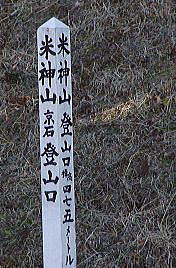 米神山
京石
登山口
米神山
登山口
標高
四七五
メートル